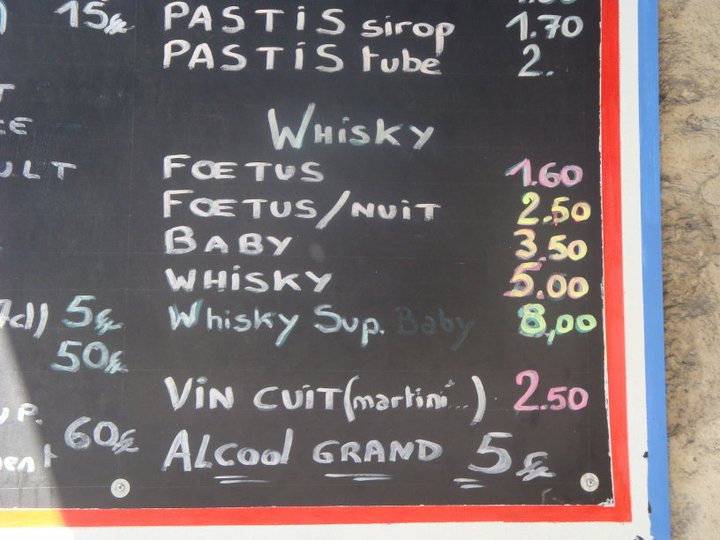 15€
PASTIS sirop 1.70
PASTIS tube 2.
WHisky
FŒTUS 1.60
FŒTUS/NUIT 2.50
BABY 3.50
WHISKY 5.00
5€ Whisky Sup. Baby 8,00
50€
VIN CUIT (martini...) 2.50
60€ ALCOOL GRAND 5€